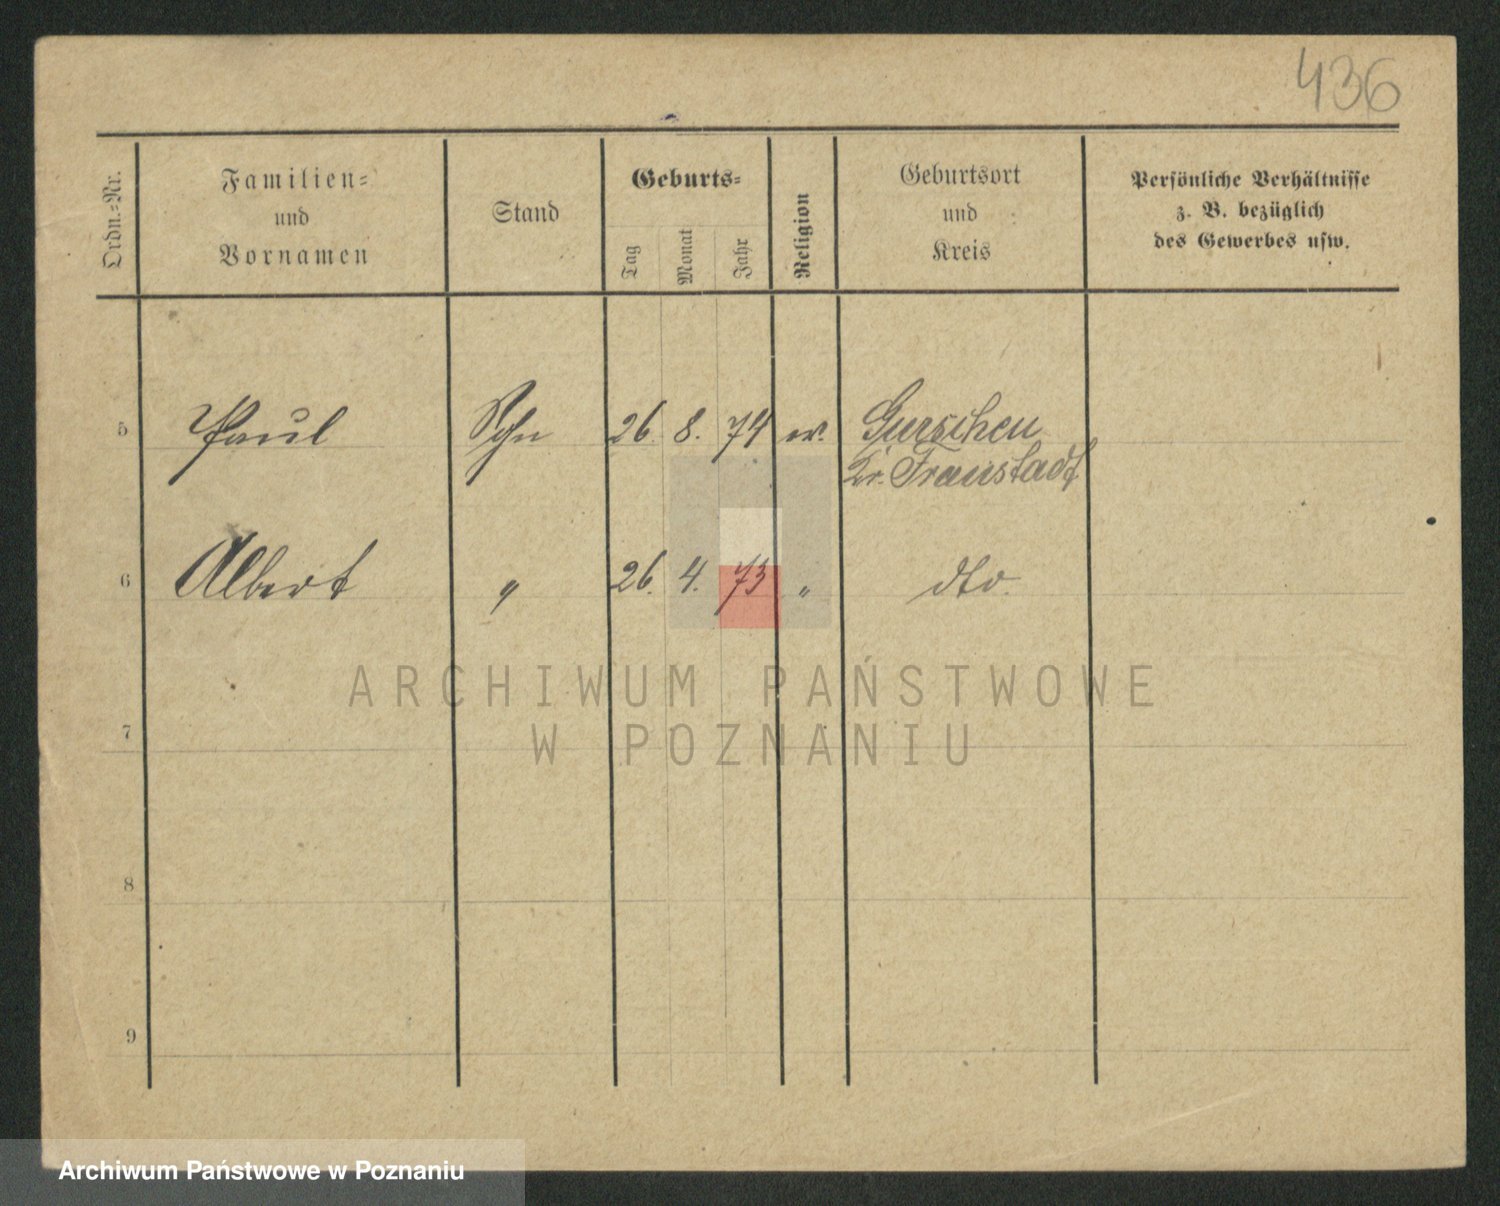 436
Ordn.-Nr.
Familien-
und
Vornamen
Stand
Geburts-
Tag
Monat
Jahr
Religion
Geburtsort
und
Kreis
Persönliche Verhältnisse
z. B. bezüglich
des Gewerbes usw.
5 Paul Sohn 26. 8. 74 ev. Gurschen
Kr. Fraustadt
6 Albert " 26. 4. 73 " dto.
7
8
9
ARCHIWUM PAŃSTWOWE
W POZNANIU
Archiwum Państwowe w Poznaniu